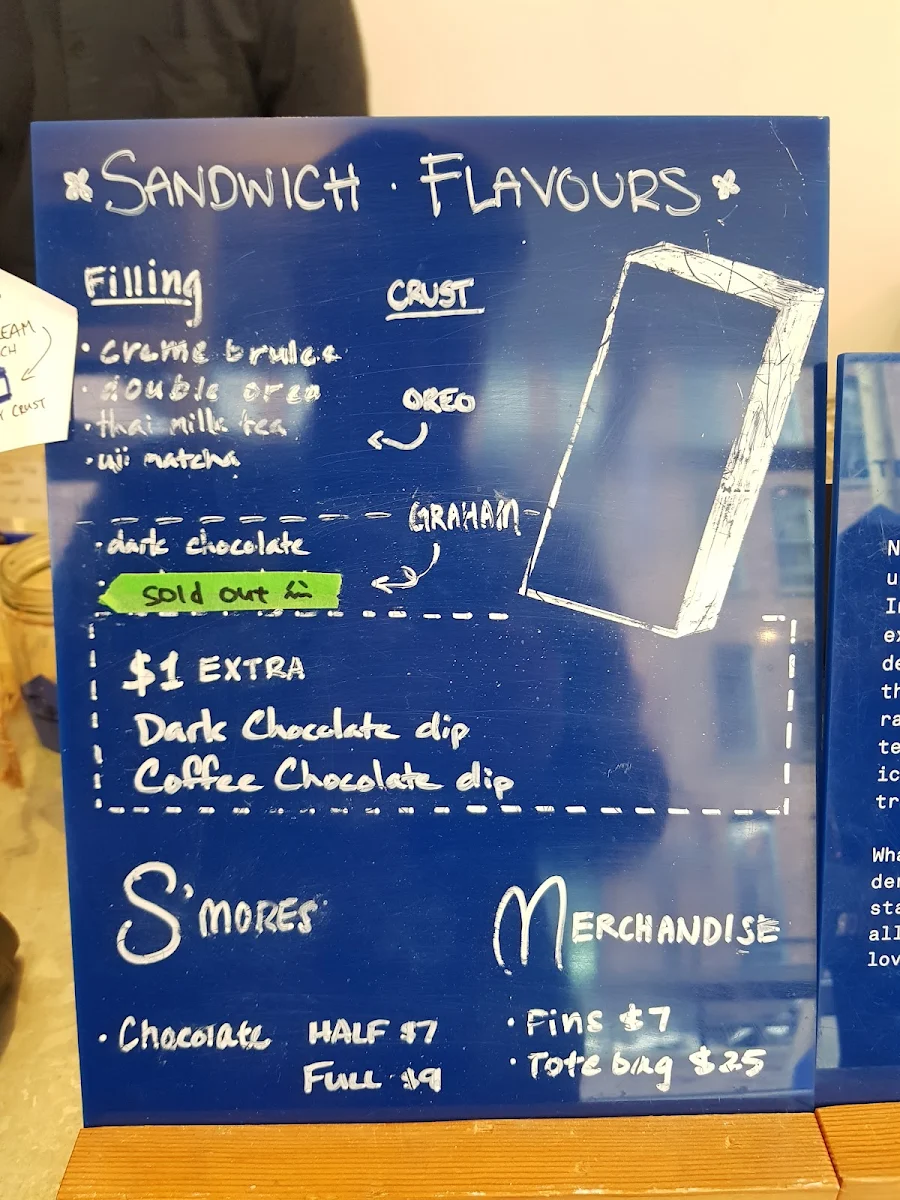 SANDWICH · FLAVOURS
Filling
CRUST
· creme brulee
· double oreo
· thai milk tea
· uji matcha
OREO
GRAHAM
· dark chocolate
sold out
$1 EXTRA
Dark Chocolate dip
Coffee Chocolate dip
S'MORES
· Chocolate HALF $7
FULL $9
MERCHANDISE
· Pins $7
· Tote bag $25
CRUST